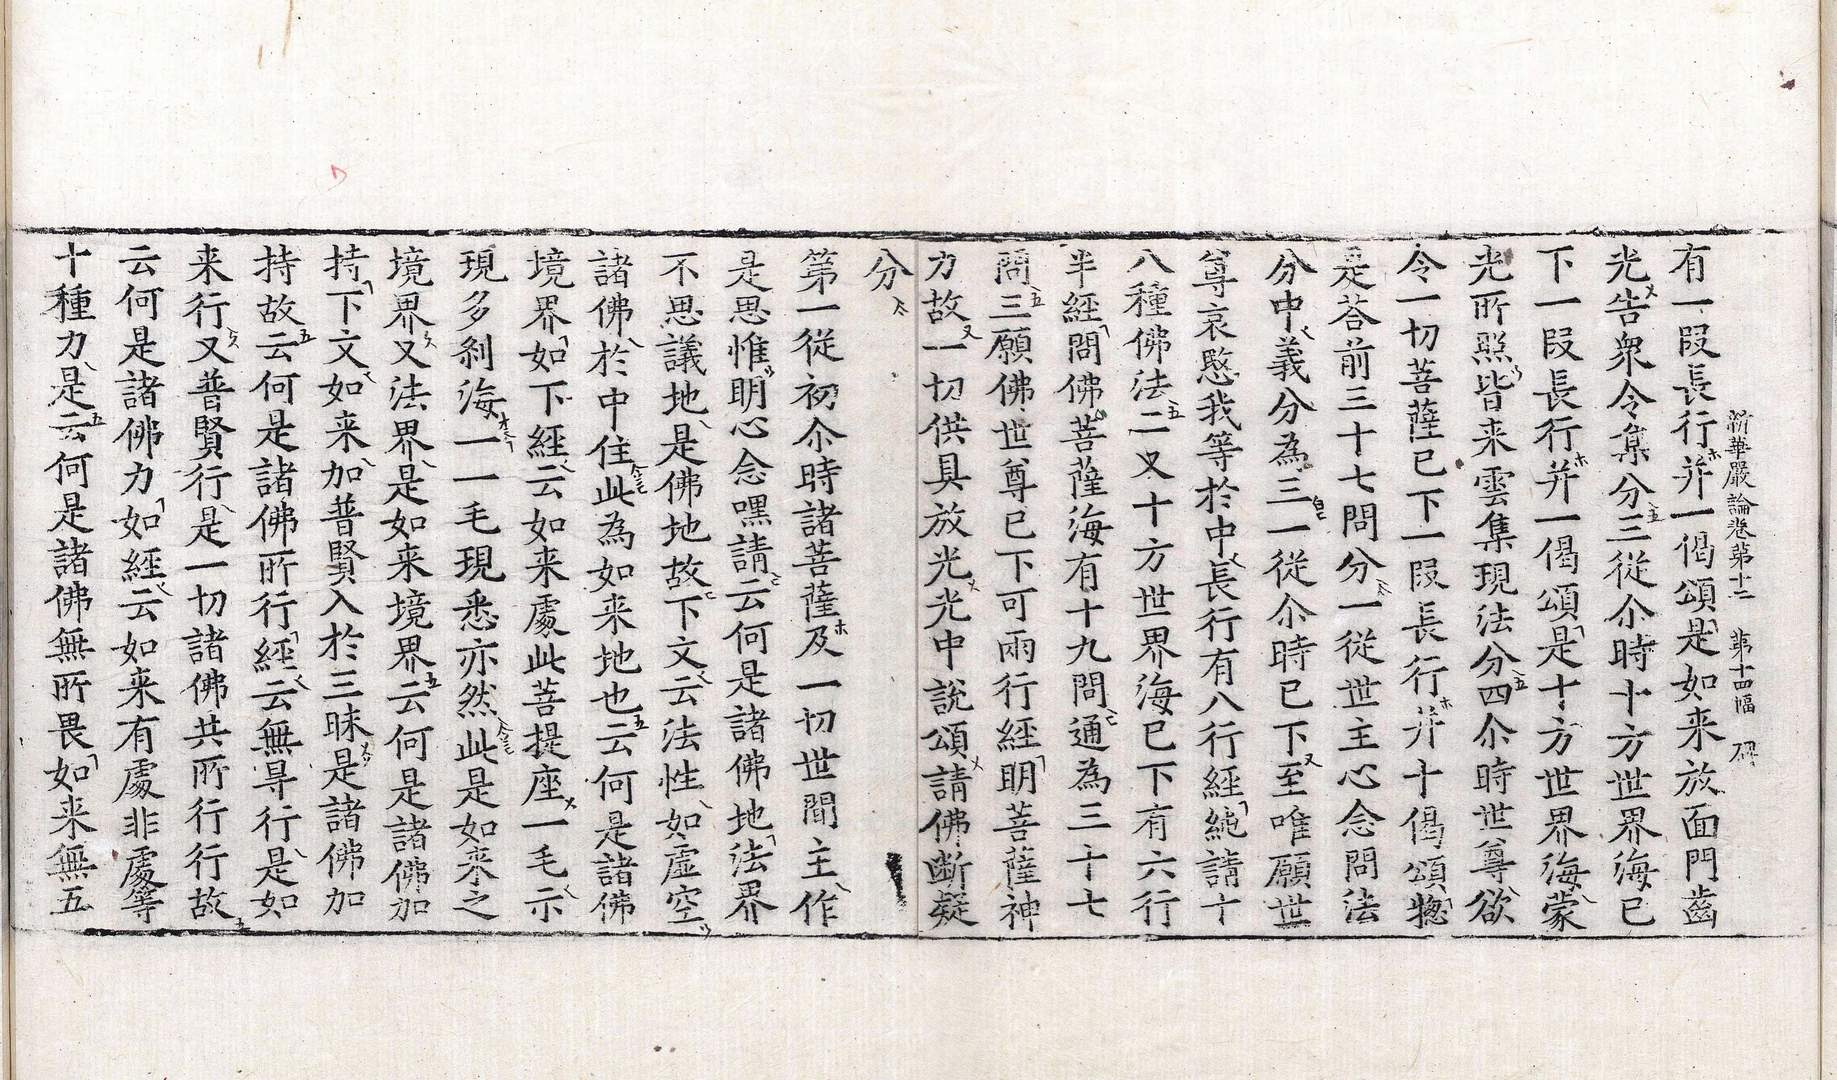 新華嚴論卷第十二 第十四幅
有一段長行并一偈頌是如来放面門齒
光告衆令集分三從尒時十方世界海已
下一段長行并一偈頌是十方世界海蒙
光所照皆来雲集現法分四尒時世尊欲
令一切菩薩已下一段長行并十偈頌惣
是荅前三十七問分一從世主心念問法
分中義分為三一從尒時已下至唯願世
尊哀愍我等於中長行有八行經純請十
八種佛法二又十方世界海已下有六行
半經問佛菩薩海有十九問通為三十七
問三願佛世尊已下可兩行經明菩薩神
力故一切供具放光光中說頌請佛断疑
分
第一從初尒時諸菩薩及一切世間主作
是思惟明心念嘿請云何是諸佛地法界
不思議地是佛地故下文云法性如虚空
諸佛於中住此為如来地也云何是諸佛
境界如下經云如来處此菩提座一毛示
現多刹海一一毛現悉亦然此是如来之
境界又法界是如来境界云何是諸佛加
持下文如来加普賢入於三昧是諸佛加
持故云何是諸佛所行經云無㝵行是如
来行又普賢行是一切諸佛共所行行故
云何是諸佛力如經云如来有處非處等
十種力是云何是諸佛無所畏如来無五